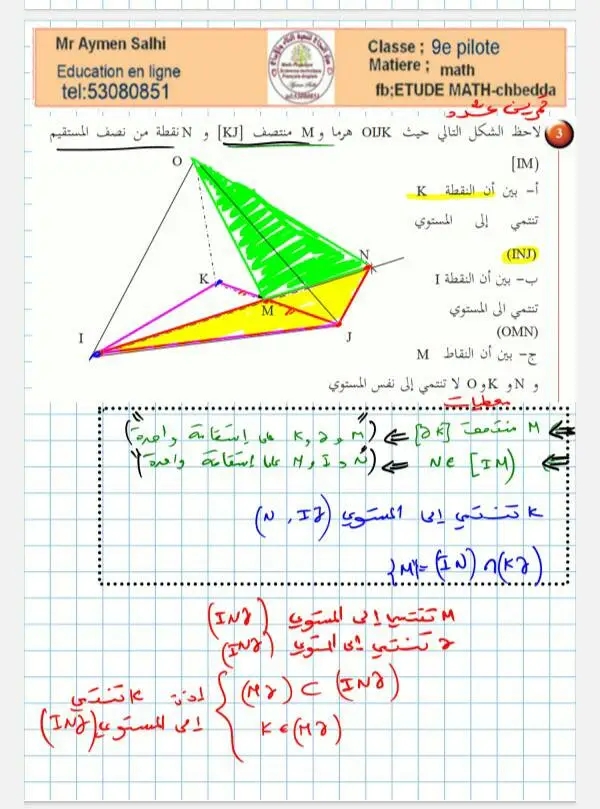 Mr Aymen Salhi
Education en ligne
tel:53080851
Classe ; 9e pilote
Matiere ; math
fb;ETUDE MATH-chbedda
تمرين عدد
3 لاحظ الشكل التالي حيث OIJK هرما و M منتصف [KJ] و N نقطة من نصف المستقيم
[IM)
أ- بين أن النقطة K
تنتمي إلى المستوي
(INJ)
ب- بين أن النقطة I
تنتمي الى المستوي
(OMN)
ج- بين أن النقاط M
و N و K و O لا تنتمي إلى نفس المستوي
O
K
N
M
I
J
معطيات
M منتصف [JK] ⇐ (M و J و K على إستقامة واحدة)
N∈ [IM) ⇐ (N و I و M على إستقامة واحدة)
K تنتمي إلى المستوي (N, IJ)
{M}=(IN)∩(KJ)
M تنتمي إلى المستوي (INJ)
J تنتمي إلى المستوي (INJ)
(MJ) ⊂ (INJ)
K∈(MJ)
إذن K تنتمي
إلى المستوي (INJ)